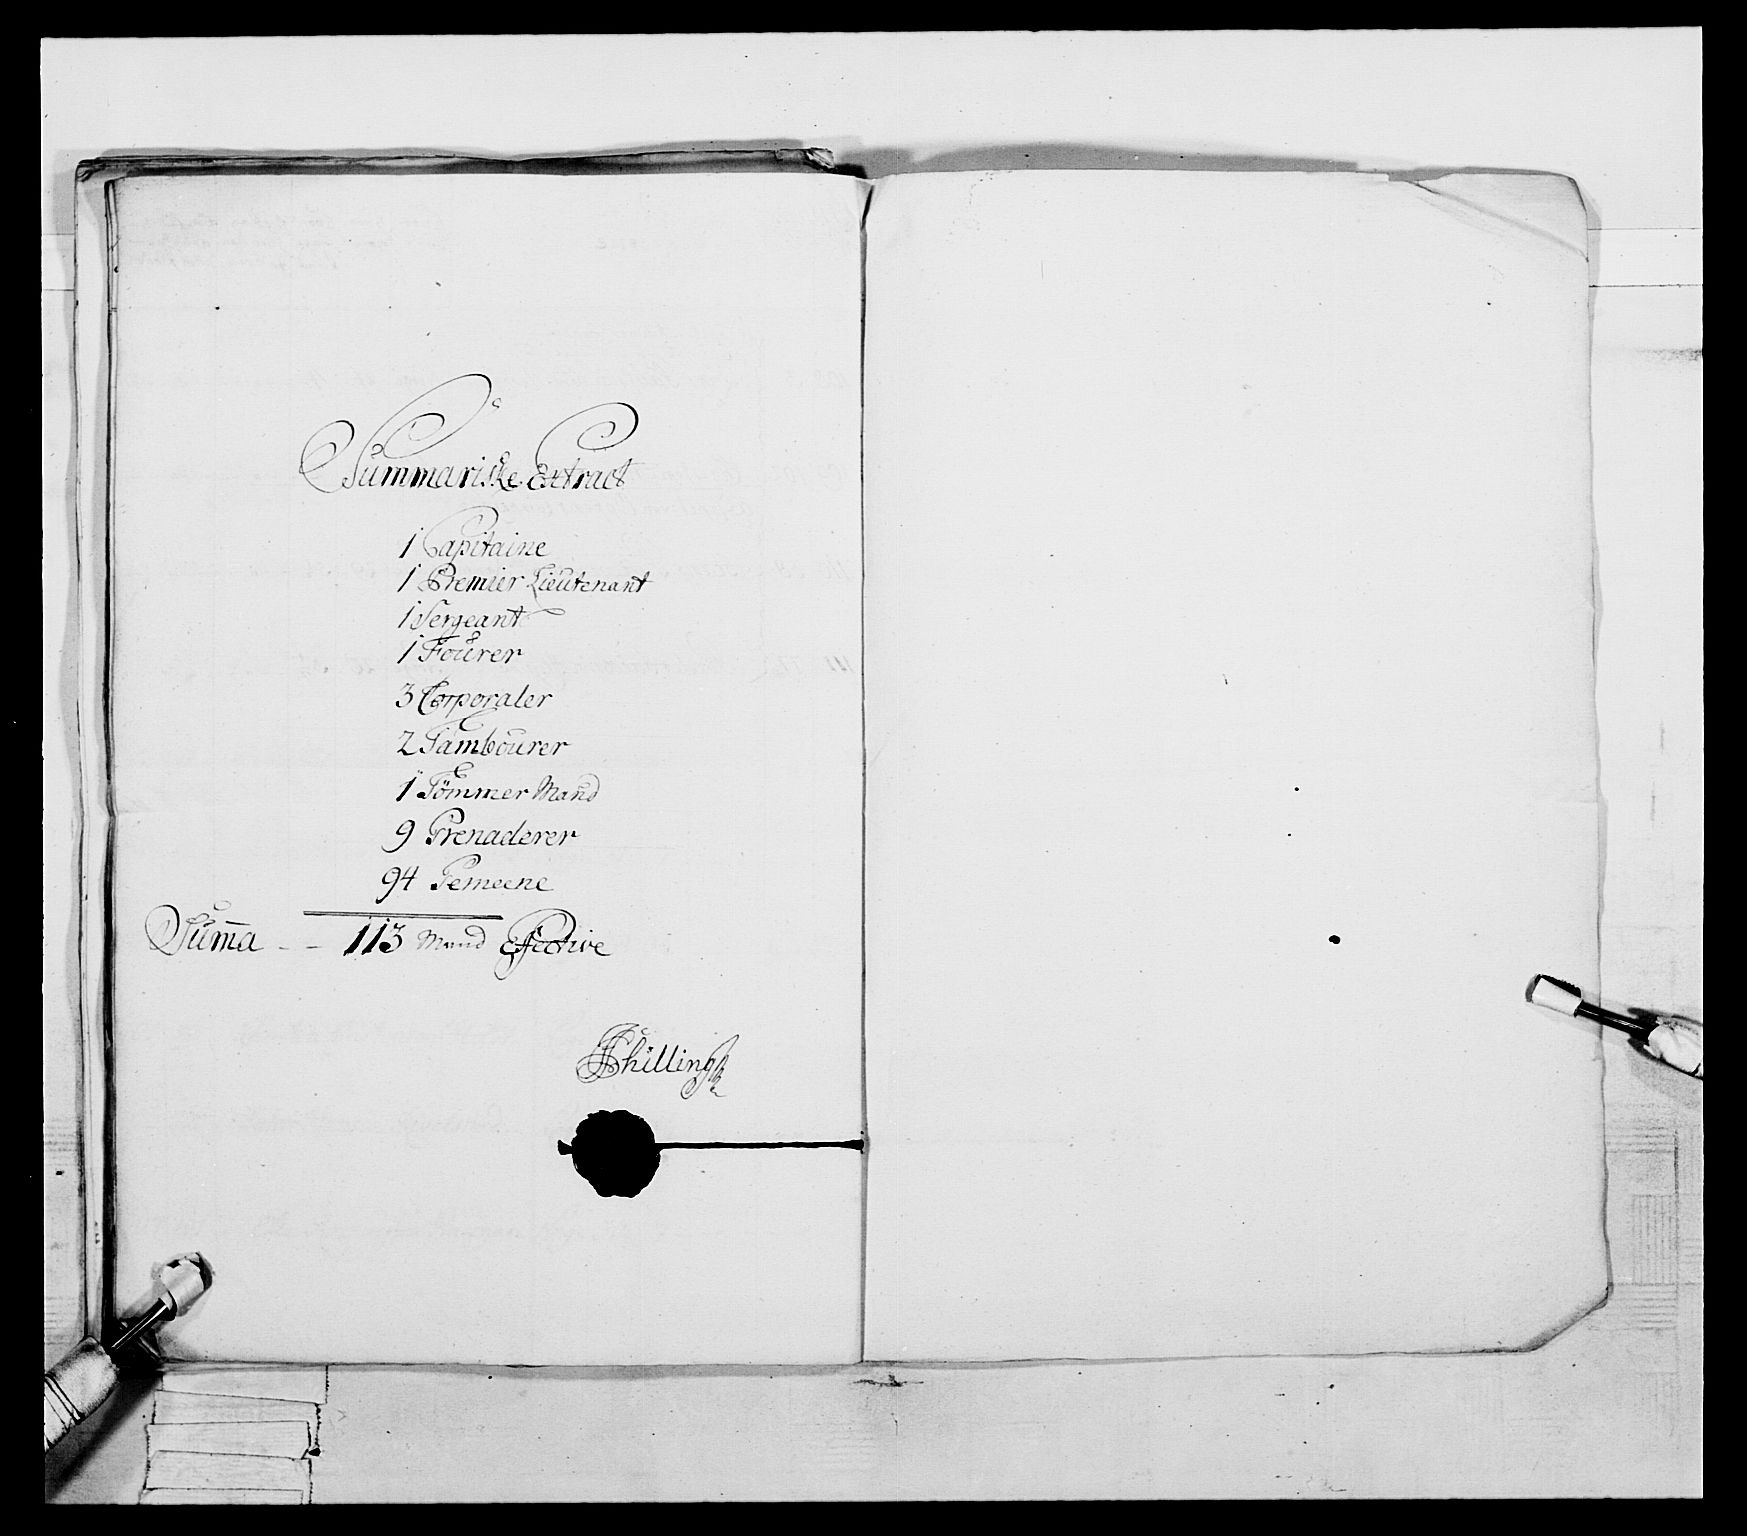 Summariske Extract
1 Capitaine
1 Premier Lieutenant
1 Sergeant
1 Fourer
3 Corporaler
2 Tambourer
1 Tömmer Mand
9 Grenaderer
94 Gemeene
Sum̅a - - 113 Mand Effective
Schilling